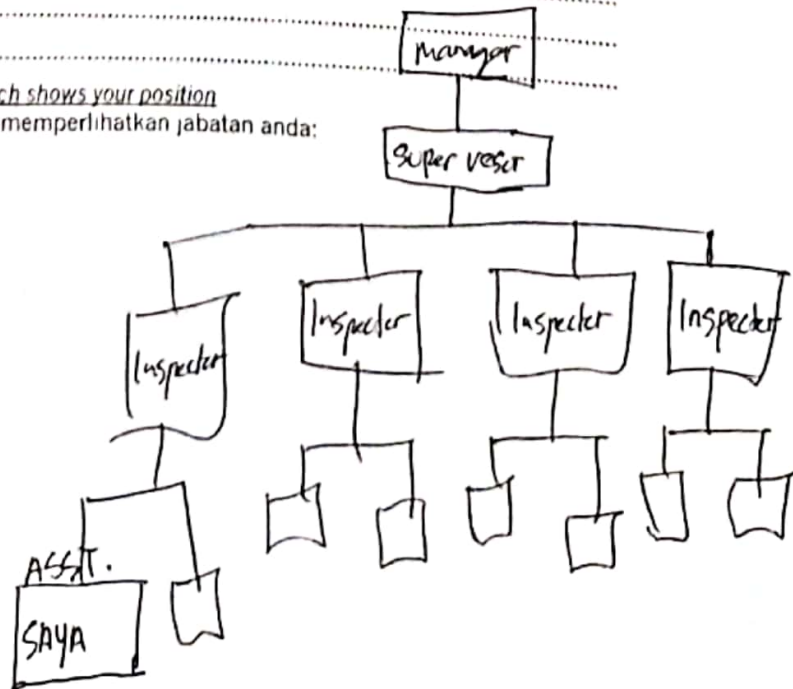 manager
ch shows your position
memperlihatkan jabatan anda:
Super vesor
Inspecter
Inspecter
Inspecter
Inspecter
ASST.
SAYA